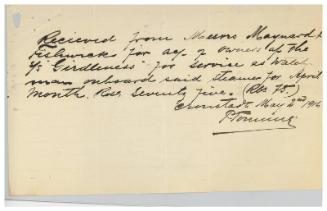 Received from Messrs Maynard &
Fishwick for a/c of owners of the
S/S "Girdleness" for service as watch-
man onboard said steamer for April
month. Rbs. Seventy five. (Rbs 75.)
Cronstadt May 2nd 1916